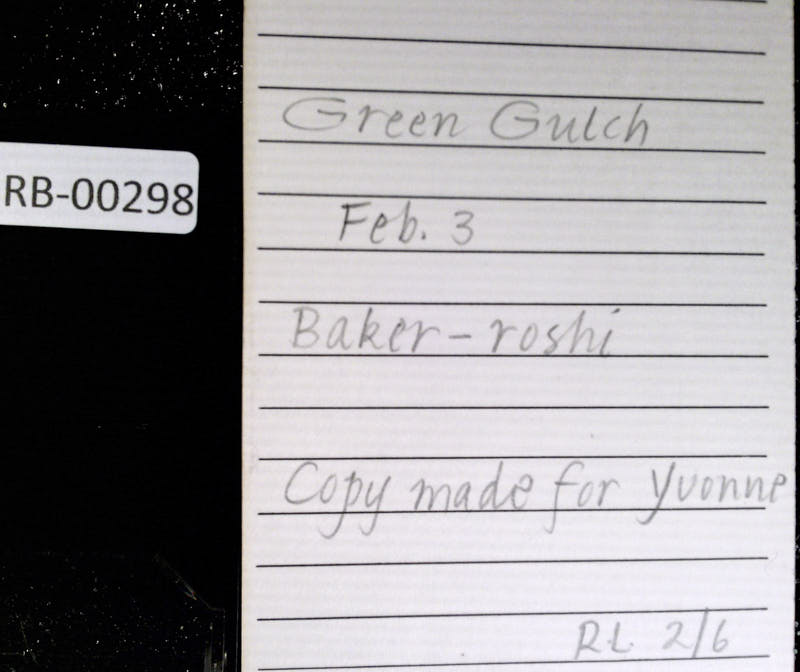 RB-00298
Green Gulch
Feb. 3
Baker-roshi
Copy made for Yvonne
RL 2/6